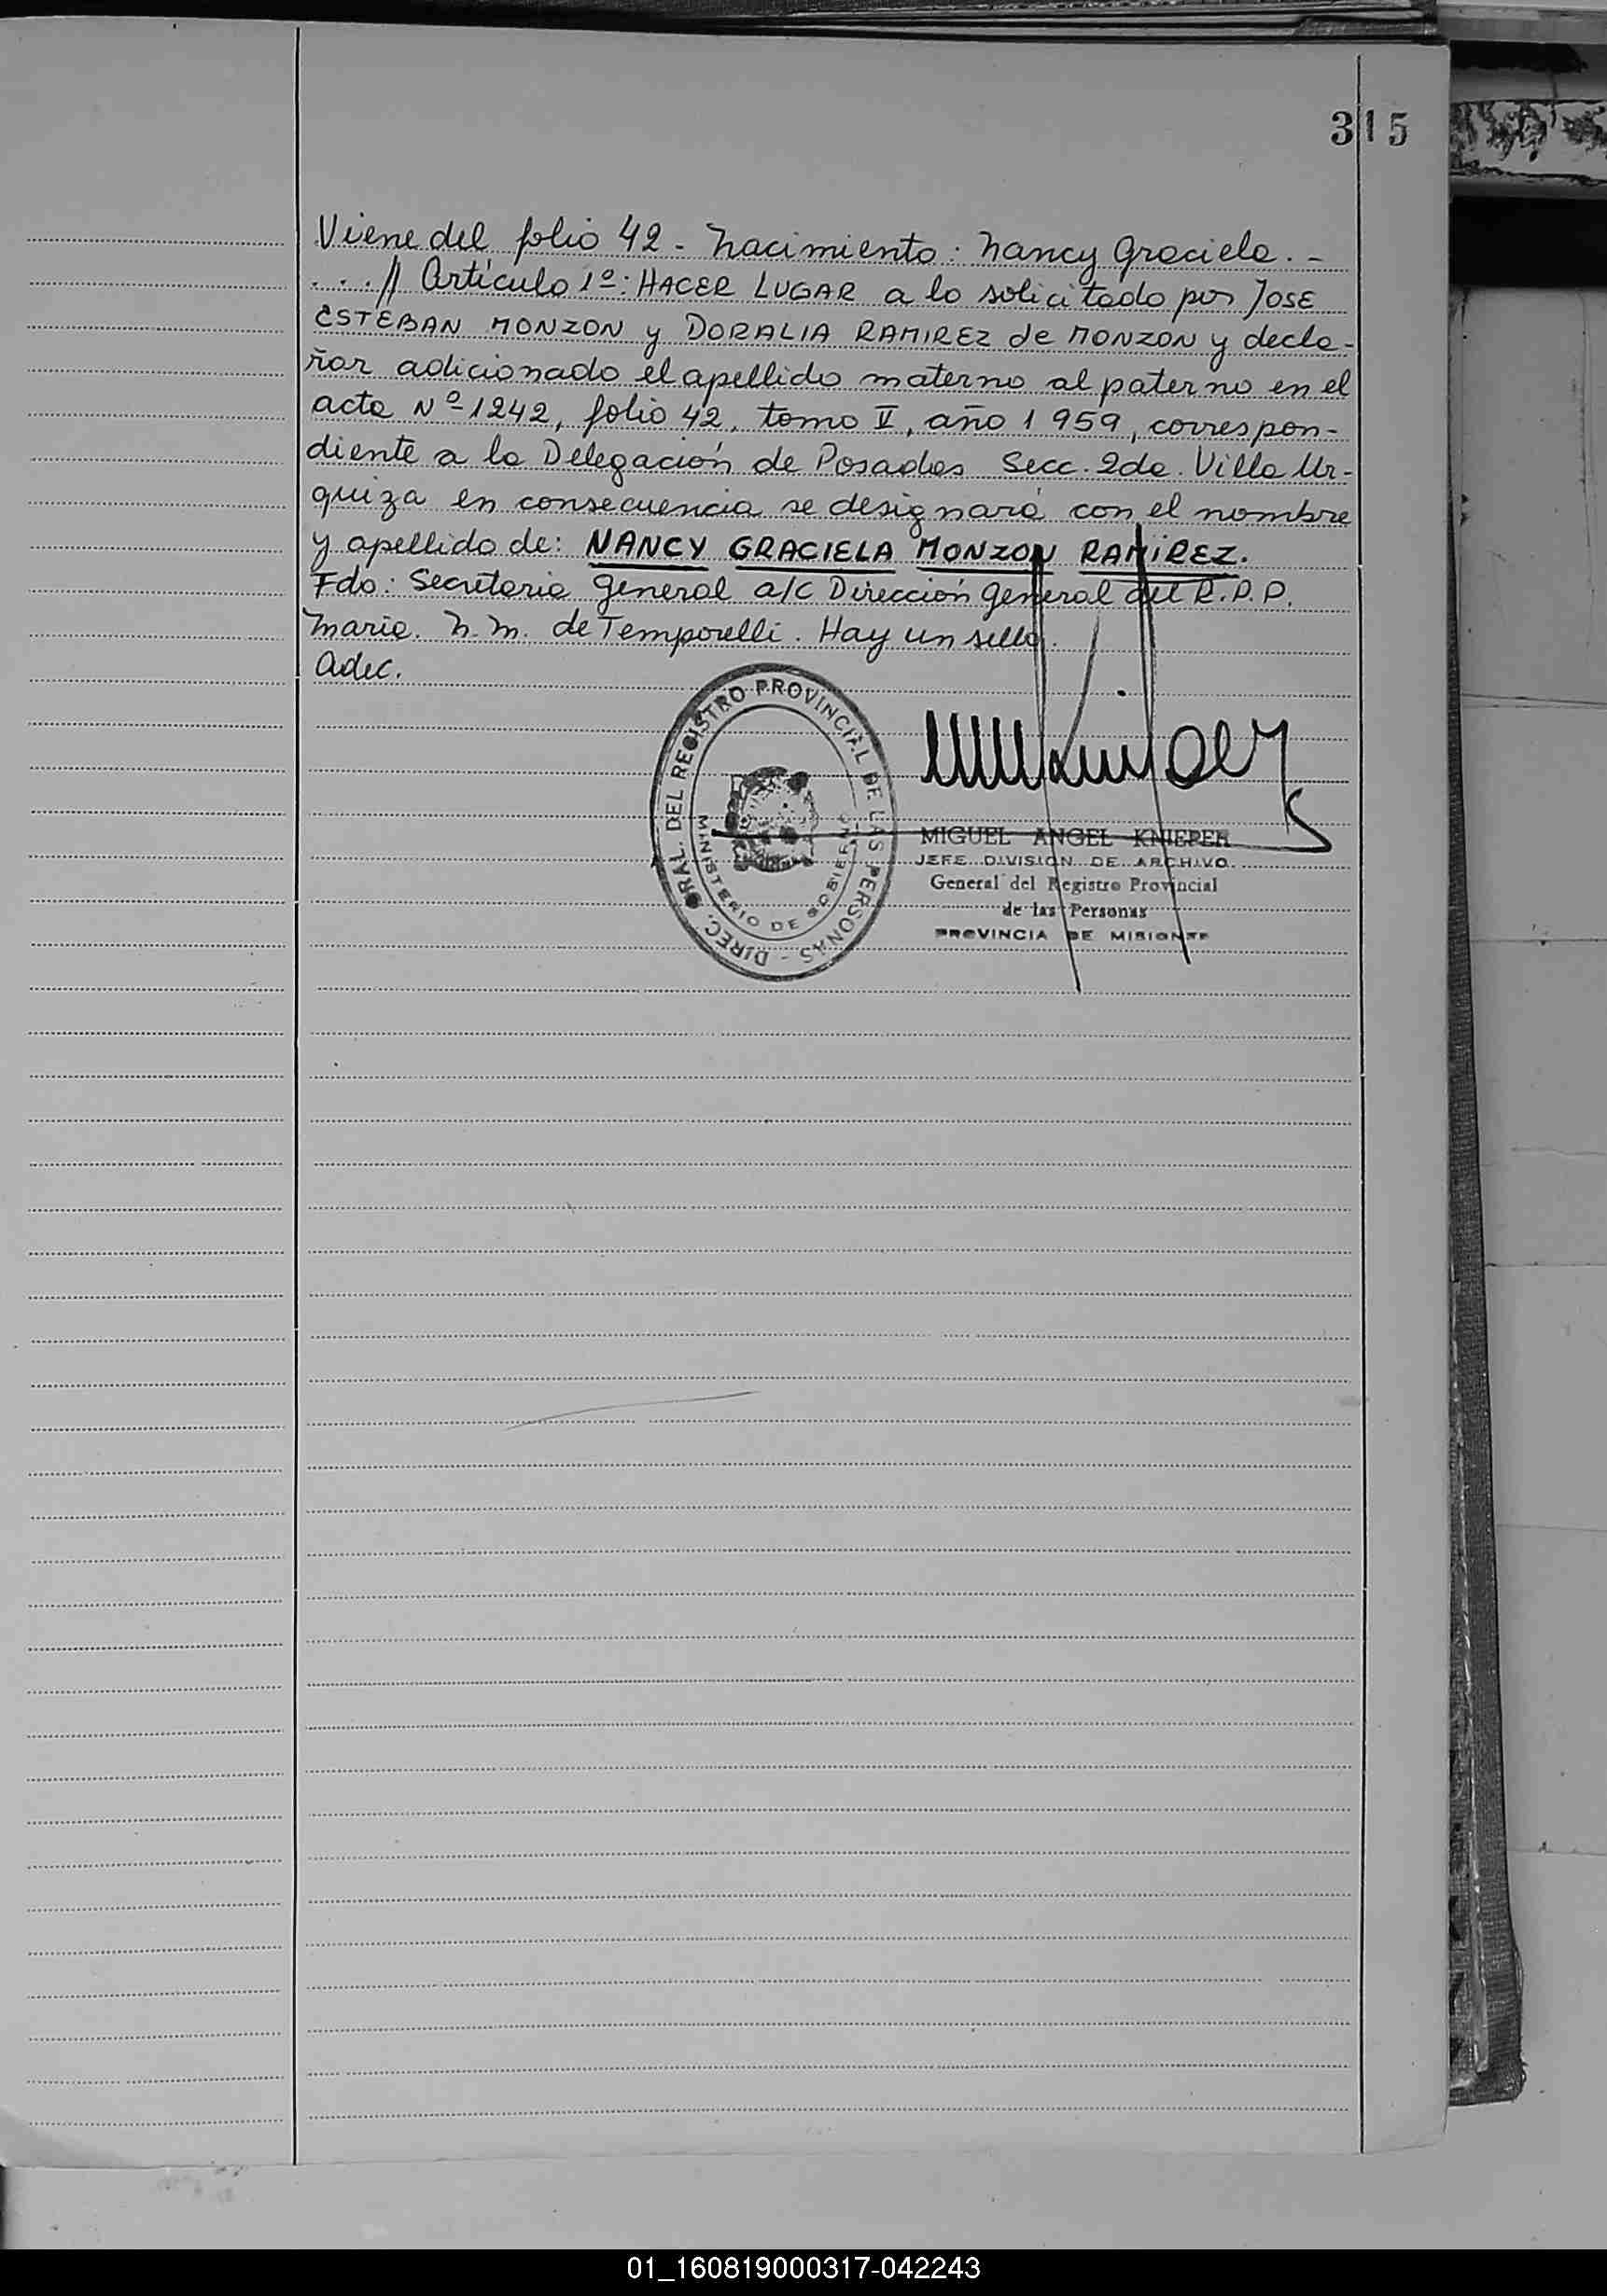 315
Viene del folio 42 - Nacimiento: Nancy Graciela. -
. . .// Artículo 1º: HACER LUGAR a lo solicitado por JOSE
ESTEBAN MONZON y DORALIA RAMIREZ de MONZON y decla-
rar adicionado el apellido materno al paterno en el
acta Nº 1242, folio 42, tomo II, año 1959, correspon-
diente a la Delegación de Posadas Secc. 2da. Villa Ur-
quiza en consecuencia se designará con el nombre
y apellido de: NANCY GRACIELA MONZON RAMIREZ.
Fdo: Secretaria General a/c Dirección General del R.P.P.
Maria. N. M. de Temporelli. Hay un sello.
Adec.
DIREC. GRAL. DEL REGISTRO PROVINCIAL DE LAS PERSONAS -
MINISTERIO DE GOBIERNO
MIGUEL ANGEL KNIEPER
JEFE DIVISION DE ARCHIVO
General del Registro Provincial
de las Personas
PROVINCIA DE MISIONES
01_160819000317-042243